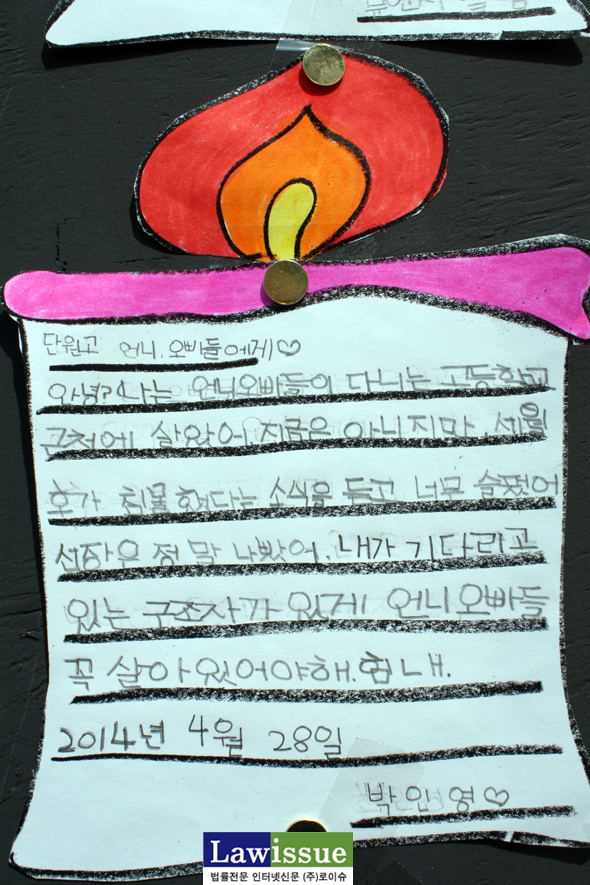 단원고 언니, 오빠들에게♡
안녕? 나는 언니오빠들이 다니는 고등학교
근처에 살았어 지금은 아니지만. 세월
호가 침몰 했다는 소식을 듣고 너무 슬펐어
선장은 정말 나빴어. 내가 기다리고
있는 구조자가 있게 언니오빠들
꼭 살아있어야해. 힘내.
2014년 4월 28일
박인영♡
Lawissue
법률전문 인터넷신문 (주)로이슈